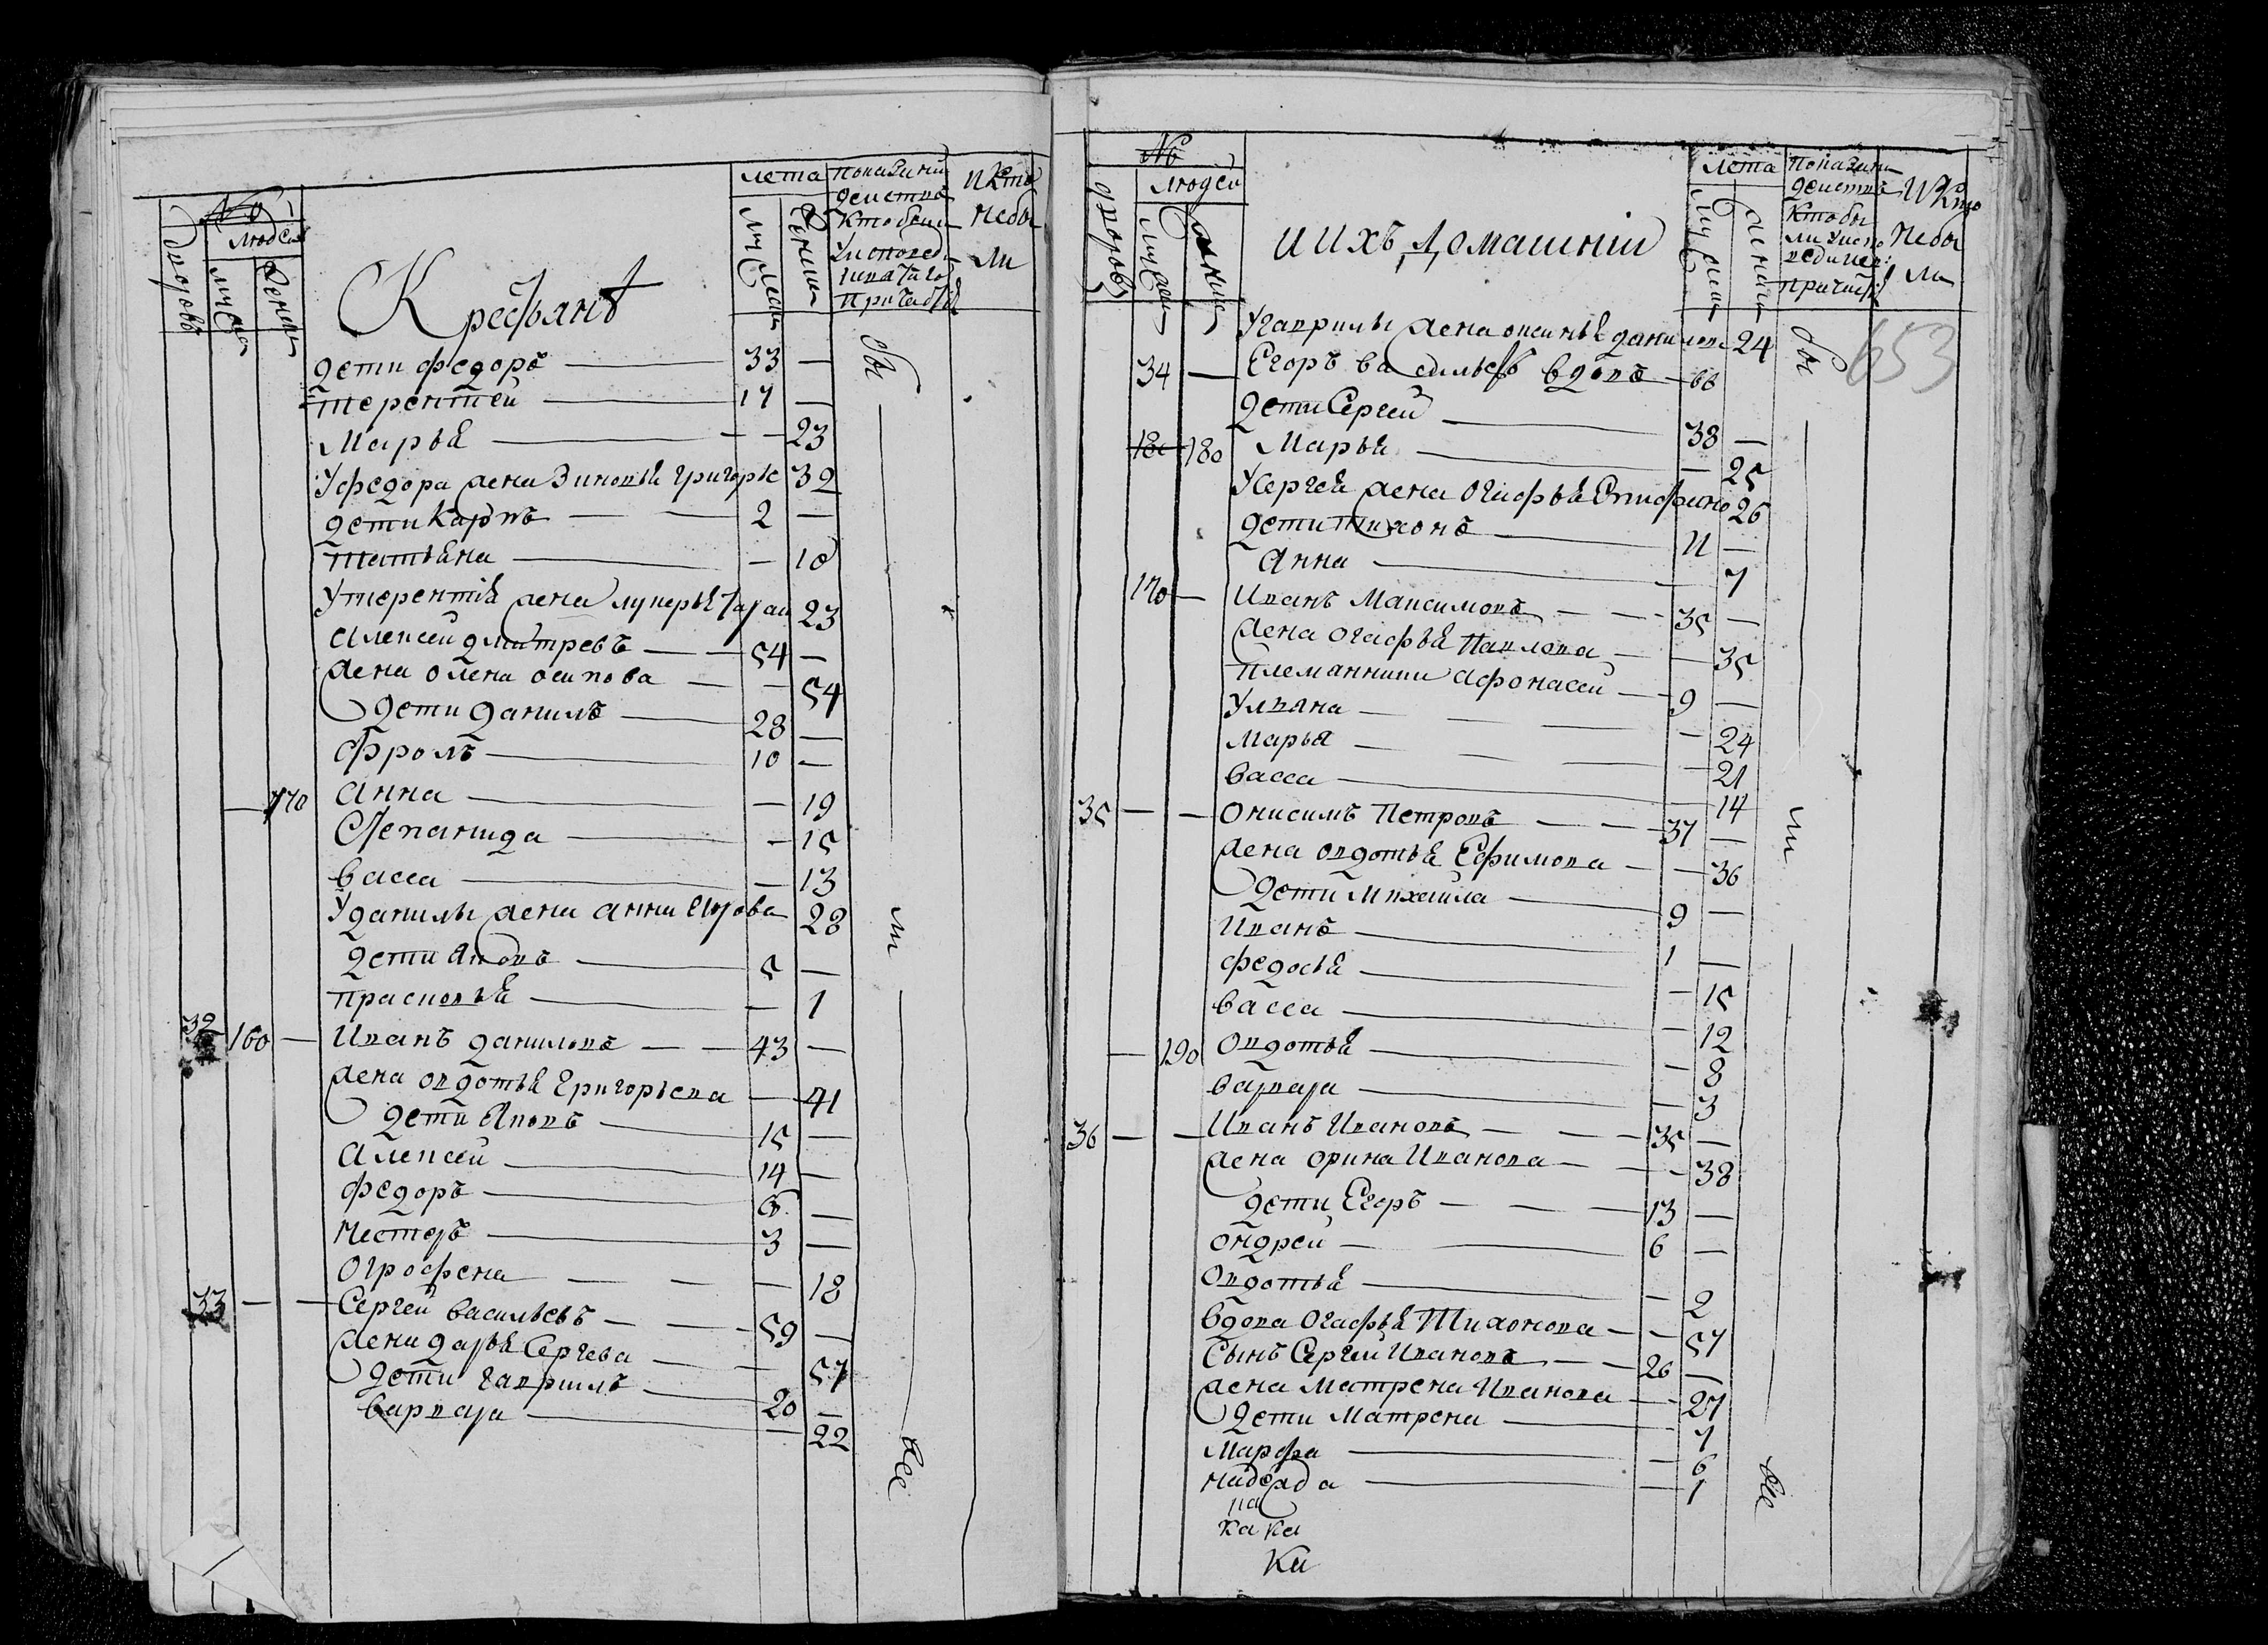 №
Людей
дворовъ
муже
женск
Крестьянъ
лета
мужеска
женска
показании
действъ
кто были
У исповеди
и святаго
причастия
и кто
не бы
ли
дети федоръ — 33 —
терентей — 17 —
Марья — — 23
У федора жена Зиновья григорье 32
дети Карпъ — — 2 —
татьяна — — 10
У терентiя жена лукерья 23
Алексей дмитревъ — — 54 —
жена олена осипова — — 54
дети данилъ — 28 —
фролъ — 10 —
— 170 Анна — — 19
Степанида — — 15
васса — — 13
У данилы жена анна 28
дети Яковъ — 5 —
прасковья — — 1
32 160 — Иванъ даниловъ — — 43 —
жена овдотья григорьева — 41
дети Яковъ — 15 —
Алексей — 14 —
федоръ — —
Несторъ — 3 —
Огрофена — — — 18
33 — — Сергей васильевъ — — 59 —
жена дарья Сергева — — 57
дети гаврилъ — 20 —
варвара — — 22
бы
ли
все
№
Людей
дворовъ
мужес
женск
и ихъ домашнии
лета
мужеск
женски
показани
действъ
кто бы
ли у испо
веди и св:
причаст
и кто
не бы
ли
653
У гаврилы жена оксинья данилова 24
34 — Егоръ васильевъ вдовъ — 66
дети Сергей — 38 —
180 Марья — — 25
У сергея жена огафья Епифано 26
дети тихонъ — 11 —
Анна — — 7
170 — Иванъ Максимовъ — — 35 —
жена огафья Павлова — — 35
племанники афонасей — 9 —
Улияна — — — — 24
марья — — — — 21
васса — — 14
35 — — Онисимъ Петровъ — — 37 —
жена овдотья Ефимова — — 36
дети Михаила — 9 —
Иванъ — 1 —
федосья — — 15
васса — — 12
— 190 Овдотья — — 8
варвара — — 3
36 — — Иванъ Ивановъ — — — 35 —
жена орина Иванова — — — 38
дети Егоръ — — — 13 —
ондрей — — 6 —
Овдотья — — 2
вдова Огафья Тихонова — — 57
Сынъ Сергей Ивановъ — — 26 —
жена Матрена Иванова — — 27
дети Матрена — 7
Марфа — — 6
надежда — — 1
на
ка ка
Ки
бы
ли
все